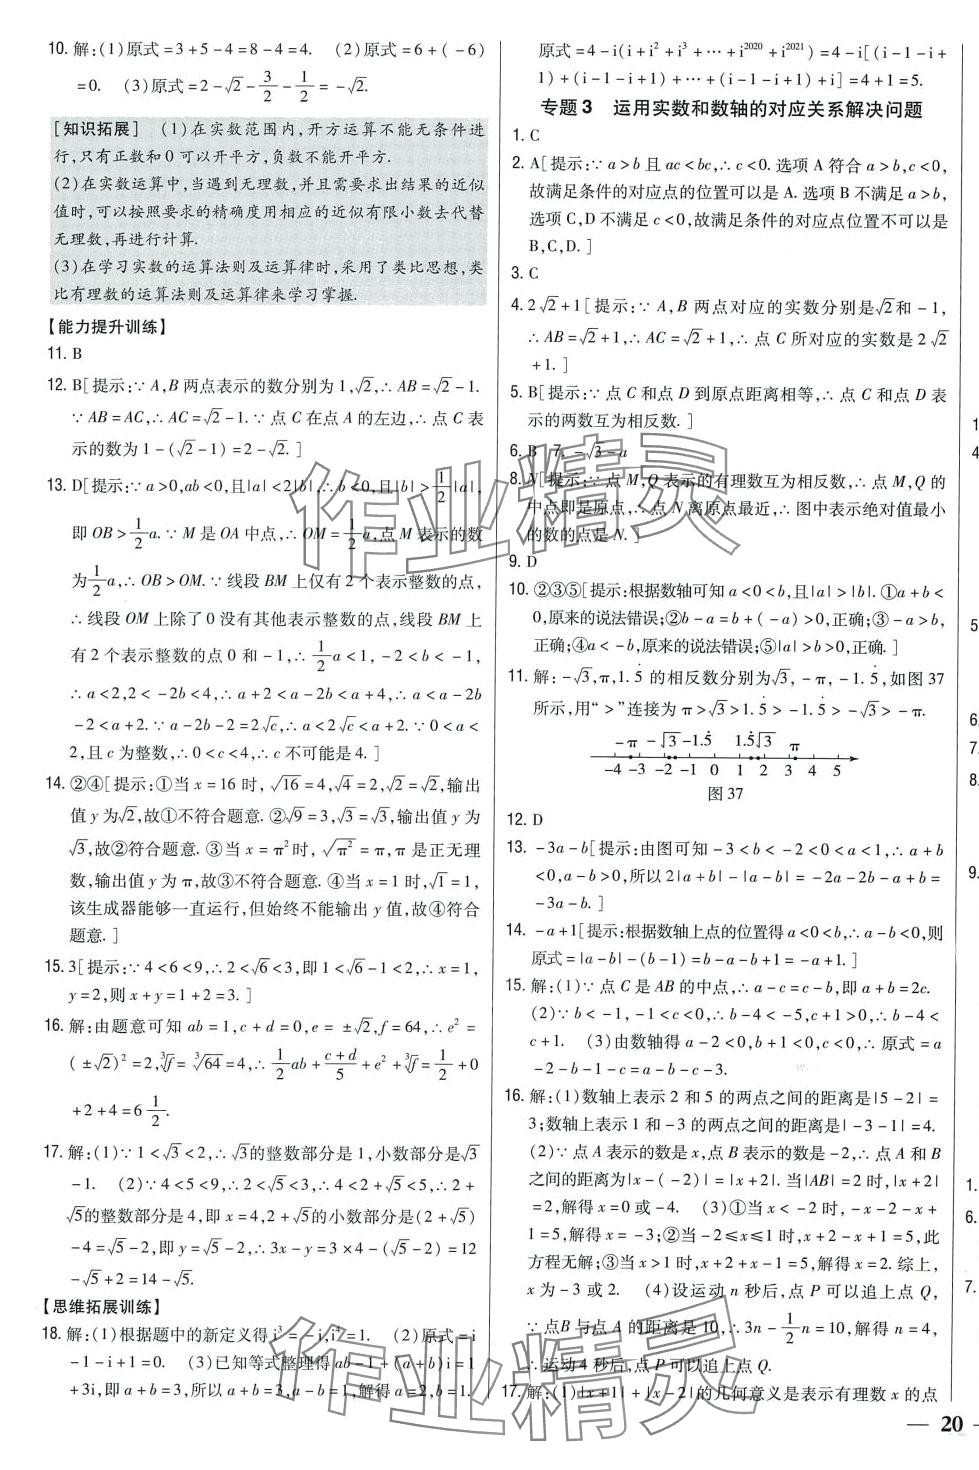 10. 解:(1)原式=3+5-4=8-4=4.  (2)原式=6+(-6)
=0.  (3)原式=2-√2-3/2-1/2=-√2.
[知识拓展] (1)在实数范围内,开方运算不能无条件进
行,只有正数和0可以开平方,负数不能开平方.
(2)在实数运算中,当遇到无理数,并且需要求出结果的近似
值时,可以按照要求的精确度用相应的近似有限小数去代替
无理数,再进行计算.
(3)在学习实数的运算法则及运算律时,采用了类比思想,类
比有理数的运算法则及运算律来学习掌握.
【能力提升训练】
11. B
12. B[提示:∵A,B两点表示的数分别为1,√2,∴AB=√2-1.
∵AB=AC,∴AC=√2-1.∵点C在点A的左边,∴点C表
示的数为1-(√2-1)=2-√2.]
13. D[提示:∵a>0,ab<0,且|a|<2|b|,∴b<0,且|b|>1/2|a|,
即OB>1/2a.∵M是OA中点,∴OM=1/2a,点M表示的数
为1/2a,∴OB>OM.∵线段BM上仅有2个表示整数的点,
∴线段OM上除了0没有其他表示整数的点,线段BM上
有2个表示整数的点0和-1,∴1/2a<1,-2<b<-1,
∴a<2,2<-2b<4,∴a+2<a-2b<a+4,∴a-2b
-2<a+2.∵a-2b-2=2√c,∴a<2√c<a+2.∵0<a<
2,且c为整数,∴0<c<4,∴c不可能是4.]
14. ②④[提示:①当x=16时,√16=4,√4=2,√2=√2,输出
值y为√2,故①不符合题意.②√9=3,√3=√3,输出值y为
√3,故②符合题意.③当x=π²时,√π²=π,π是正无理
数,输出值y为π,故③不符合题意.④当x=1时,√1=1,
该生成器能够一直运行,但始终不能输出y值,故④符合
题意.]
15. 3[提示:∵4<6<9,∴2<√6<3,即1<√6-1<2,∴x=1,
y=2,则x+y=1+2=3.]
16. 解:由题意可知ab=1,c+d=0,e=±√2,f=64,∴e²=
(±√2)²=2,∛f=∛64=4,∴1/2ab+(c+d)/5+e²+∛f=1/2+0
+2+4=6 1/2.
17. 解:(1)∵1<√3<2,∴√3的整数部分是1,小数部分是√3
-1.  (2)∵4<5<9,∴2<√5<3,∴4<2+√5<5,∴2+
√5的整数部分是4,即x=4,2+√5的小数部分是(2+√5)
-4=√5-2,即y=√5-2,∴3x-y=3×4-(√5-2)=12
-√5+2=14-√5.
【思维拓展训练】
18. 解:(1)根据题中的新定义得i³=-i,i⁴=1.  (2)原式=-i
-1-i+1=0.  (3)已知等式整理得ab-1+(a+b)i=1
+3i,即a+b=3,所以a+b=3,a-b=1,解得a=2,b=1.
原式=4-i(i+i²+i³+…+i²⁰²⁰+i²⁰²¹)=4-i[(i-1-i+
1)+(i-1-i+1)+…+(i-1-i+1)+i]=4+1=5.
专题3 运用实数和数轴的对应关系解决问题
1. C
2. A[提示:∵a>b且ac<bc,∴c<0.选项A符合a>b,c<0,
故满足条件的对应点的位置可以是A.选项B不满足a>b,
选项C,D不满足c<0,故满足条件的对应点位置不可以是
B,C,D.]
3. C
4. 2√2+1[提示:∵A,B两点对应的实数分别是√2和-1,
∴AB=√2+1,∴AC=√2+1,∴点C所对应的实数是2√2
+1.]
5. B[提示:∵点C和点D到原点距离相等,∴点C和点D表
示的两数互为相反数.]
6. B  7. -√3-a
8. N[提示:∵点M,Q表示的有理数互为相反数,∴点M,Q的
中点即是原点,∴点N离原点最近,∴图中表示绝对值最小
的数的点是N.]
9. D
10. ②③⑤[提示:根据数轴可知a<0<b,且|a|>|b|.①a+b<
0,原来的说法错误;②b-a=b+(-a)>0,正确;③-a>b,
正确;④a<-b,原来的说法错误;⑤|a|>b,正确.]
11. 解:-√3,π,1.5̇的相反数分别为√3,-π,-1.5̇,如图37
所示,用“>”连接为π>√3>1.5̇>-1.5̇>-√3>-π.
-π -√3 -1.5̇ 1.5̇ √3 π
-4 -3 -2 -1 0 1 2 3 4 5
图37
12. D
13. -3a-b[提示:由图可知-3<b<-2<0<a<1,∴a+b
<0,a-b>0,所以2|a+b|-|a-b|=-2a-2b-a+b=
-3a-b.]
14. -a+1[提示:根据数轴上点的位置得a<0<b,∴a-b<0,则
原式=|a-b|-(b-1)=b-a-b+1=-a+1.]
15. 解:(1)∵点C是AB的中点,∴a-c=c-b,即a+b=2c.
(2)∵b<-1,-1<c<0,∴b-4<-5,c+1>0,∴b-4<
c+1.  (3)由数轴得a-2<0,b+1<0,c<0,∴原式=a
-2-b-1-c=a-b-c-3.
16. 解:(1)数轴上表示2和5的两点之间的距离是|5-2|=
3;数轴上表示1和-3的两点之间的距离是|-3-1|=4.
(2)∵点A表示的数是x,点B表示的数是-2,∴点A和B
之间的距离是|x-(-2)|=|x+2|.当|AB|=2时,|x+2|
=2,解得x=0或-4.  (3)①当x<-2时,-x-2-x+
1=5,解得x=-3;②当-2≤x≤1时,x+2-x+1=5,此
方程无解;③当x>1时,x+2+x-1=5,解得x=2.综上,
x为-3或2.  (4)设运动n秒后,点P可以追上点Q,
∵点B与点A的距离是10,∴3n-1/2n=10,解得n=4,
∴运动4秒后,点P可以追上点Q.
17. 解:(1)|x+1|+|x-2|的几何意义是表示有理数x的点
1
4
5
6.
7.
8.
9.
1.
6.
7.
— 20 —
作业精灵
作业精灵